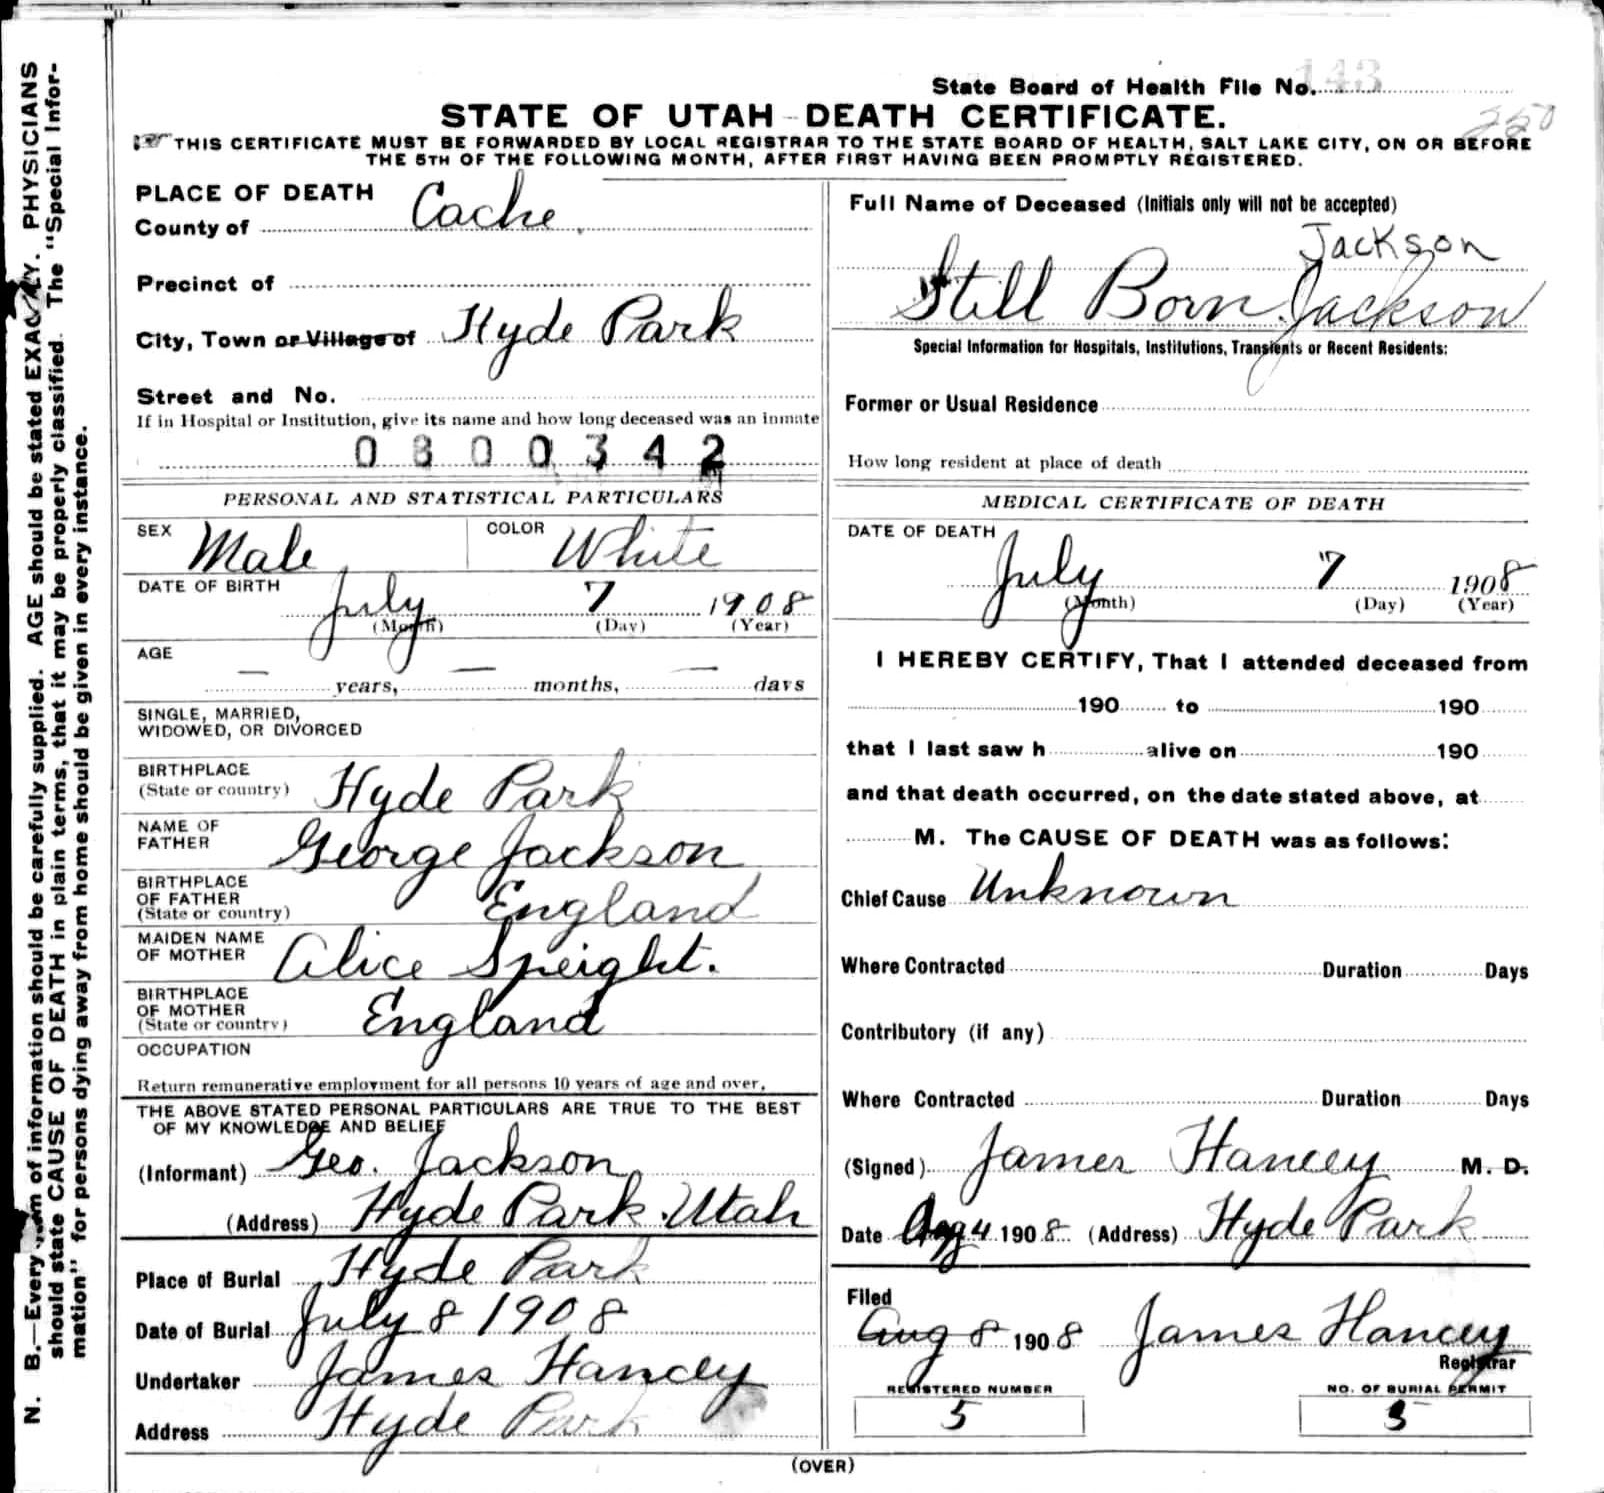 State Board of Health File No. 143
250
STATE OF UTAH - DEATH CERTIFICATE.
THIS CERTIFICATE MUST BE FORWARDED BY LOCAL REGISTRAR TO THE STATE BOARD OF HEALTH, SALT LAKE CITY, ON OR BEFORE
THE 5TH OF THE FOLLOWING MONTH, AFTER FIRST HAVING BEEN PROMPTLY REGISTERED.
N. B.—Every item of information should be carefully supplied. AGE should be stated EXACTLY. PHYSICIANS
should state CAUSE OF DEATH in plain terms, that it may be properly classified. The "Special Infor-
mation" for persons dying away from home should be given in every instance.
PLACE OF DEATH
County of Cache
Precinct of
City, Town or Village of Hyde Park
Street and No.
If in Hospital or Institution, give its name and how long deceased was an inmate
0800342
PERSONAL AND STATISTICAL PARTICULARS
SEX Male COLOR White
DATE OF BIRTH
July 7 1908
(Month) (Day) (Year)
AGE
— years, — months, — days
SINGLE, MARRIED,
WIDOWED, OR DIVORCED
BIRTHPLACE
(State or country) Hyde Park
NAME OF
FATHER George Jackson
BIRTHPLACE
OF FATHER
(State or country) England
MAIDEN NAME
OF MOTHER Alice Speight.
BIRTHPLACE
OF MOTHER
(State or country) England
OCCUPATION
Return remunerative employment for all persons 10 years of age and over.
THE ABOVE STATED PERSONAL PARTICULARS ARE TRUE TO THE BEST
OF MY KNOWLEDGE AND BELIEF
(Informant) Geo. Jackson
(Address) Hyde Park. Utah
Place of Burial Hyde Park
Date of Burial July 8 1908
Undertaker James Hancey
Address Hyde Park
Full Name of Deceased (Initials only will not be accepted)
Jackson
Still Born Jackson
Special Information for Hospitals, Institutions, Transients or Recent Residents:
Former or Usual Residence
How long resident at place of death
MEDICAL CERTIFICATE OF DEATH
DATE OF DEATH
July 7 1908
(Month) (Day) (Year)
I HEREBY CERTIFY, That I attended deceased from
190 to 190
that I last saw h alive on 190
and that death occurred, on the date stated above, at
M. The CAUSE OF DEATH was as follows:
Chief Cause Unknown
Where Contracted Duration Days
Contributory (if any)
Where Contracted Duration Days
(Signed) James Hancey M. D.
Date Aug 4 1908 (Address) Hyde Park
Filed
Aug 8 1908 James Hancey
Registrar
REGISTERED NUMBER
5
NO. OF BURIAL PERMIT
5
(OVER)